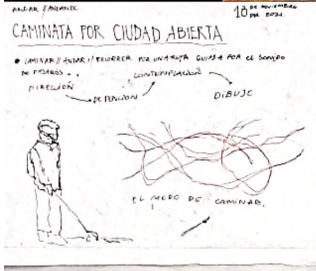 ANDAR // ANDANDE
18 DE NOVIEMBRE
DEL 2021.
CAMINATA POR CIUDAD ABIERTA
• CAMINAR // ANDAR // RECORRER POR UNA RUTA GUIADA POR EL SONIDO
DE PÁJAROS..
DIRECCIÓN
CONTEMPLACIÓN
DETENCIÓN
DIBUJO
EL MODO DE CAMINAR.